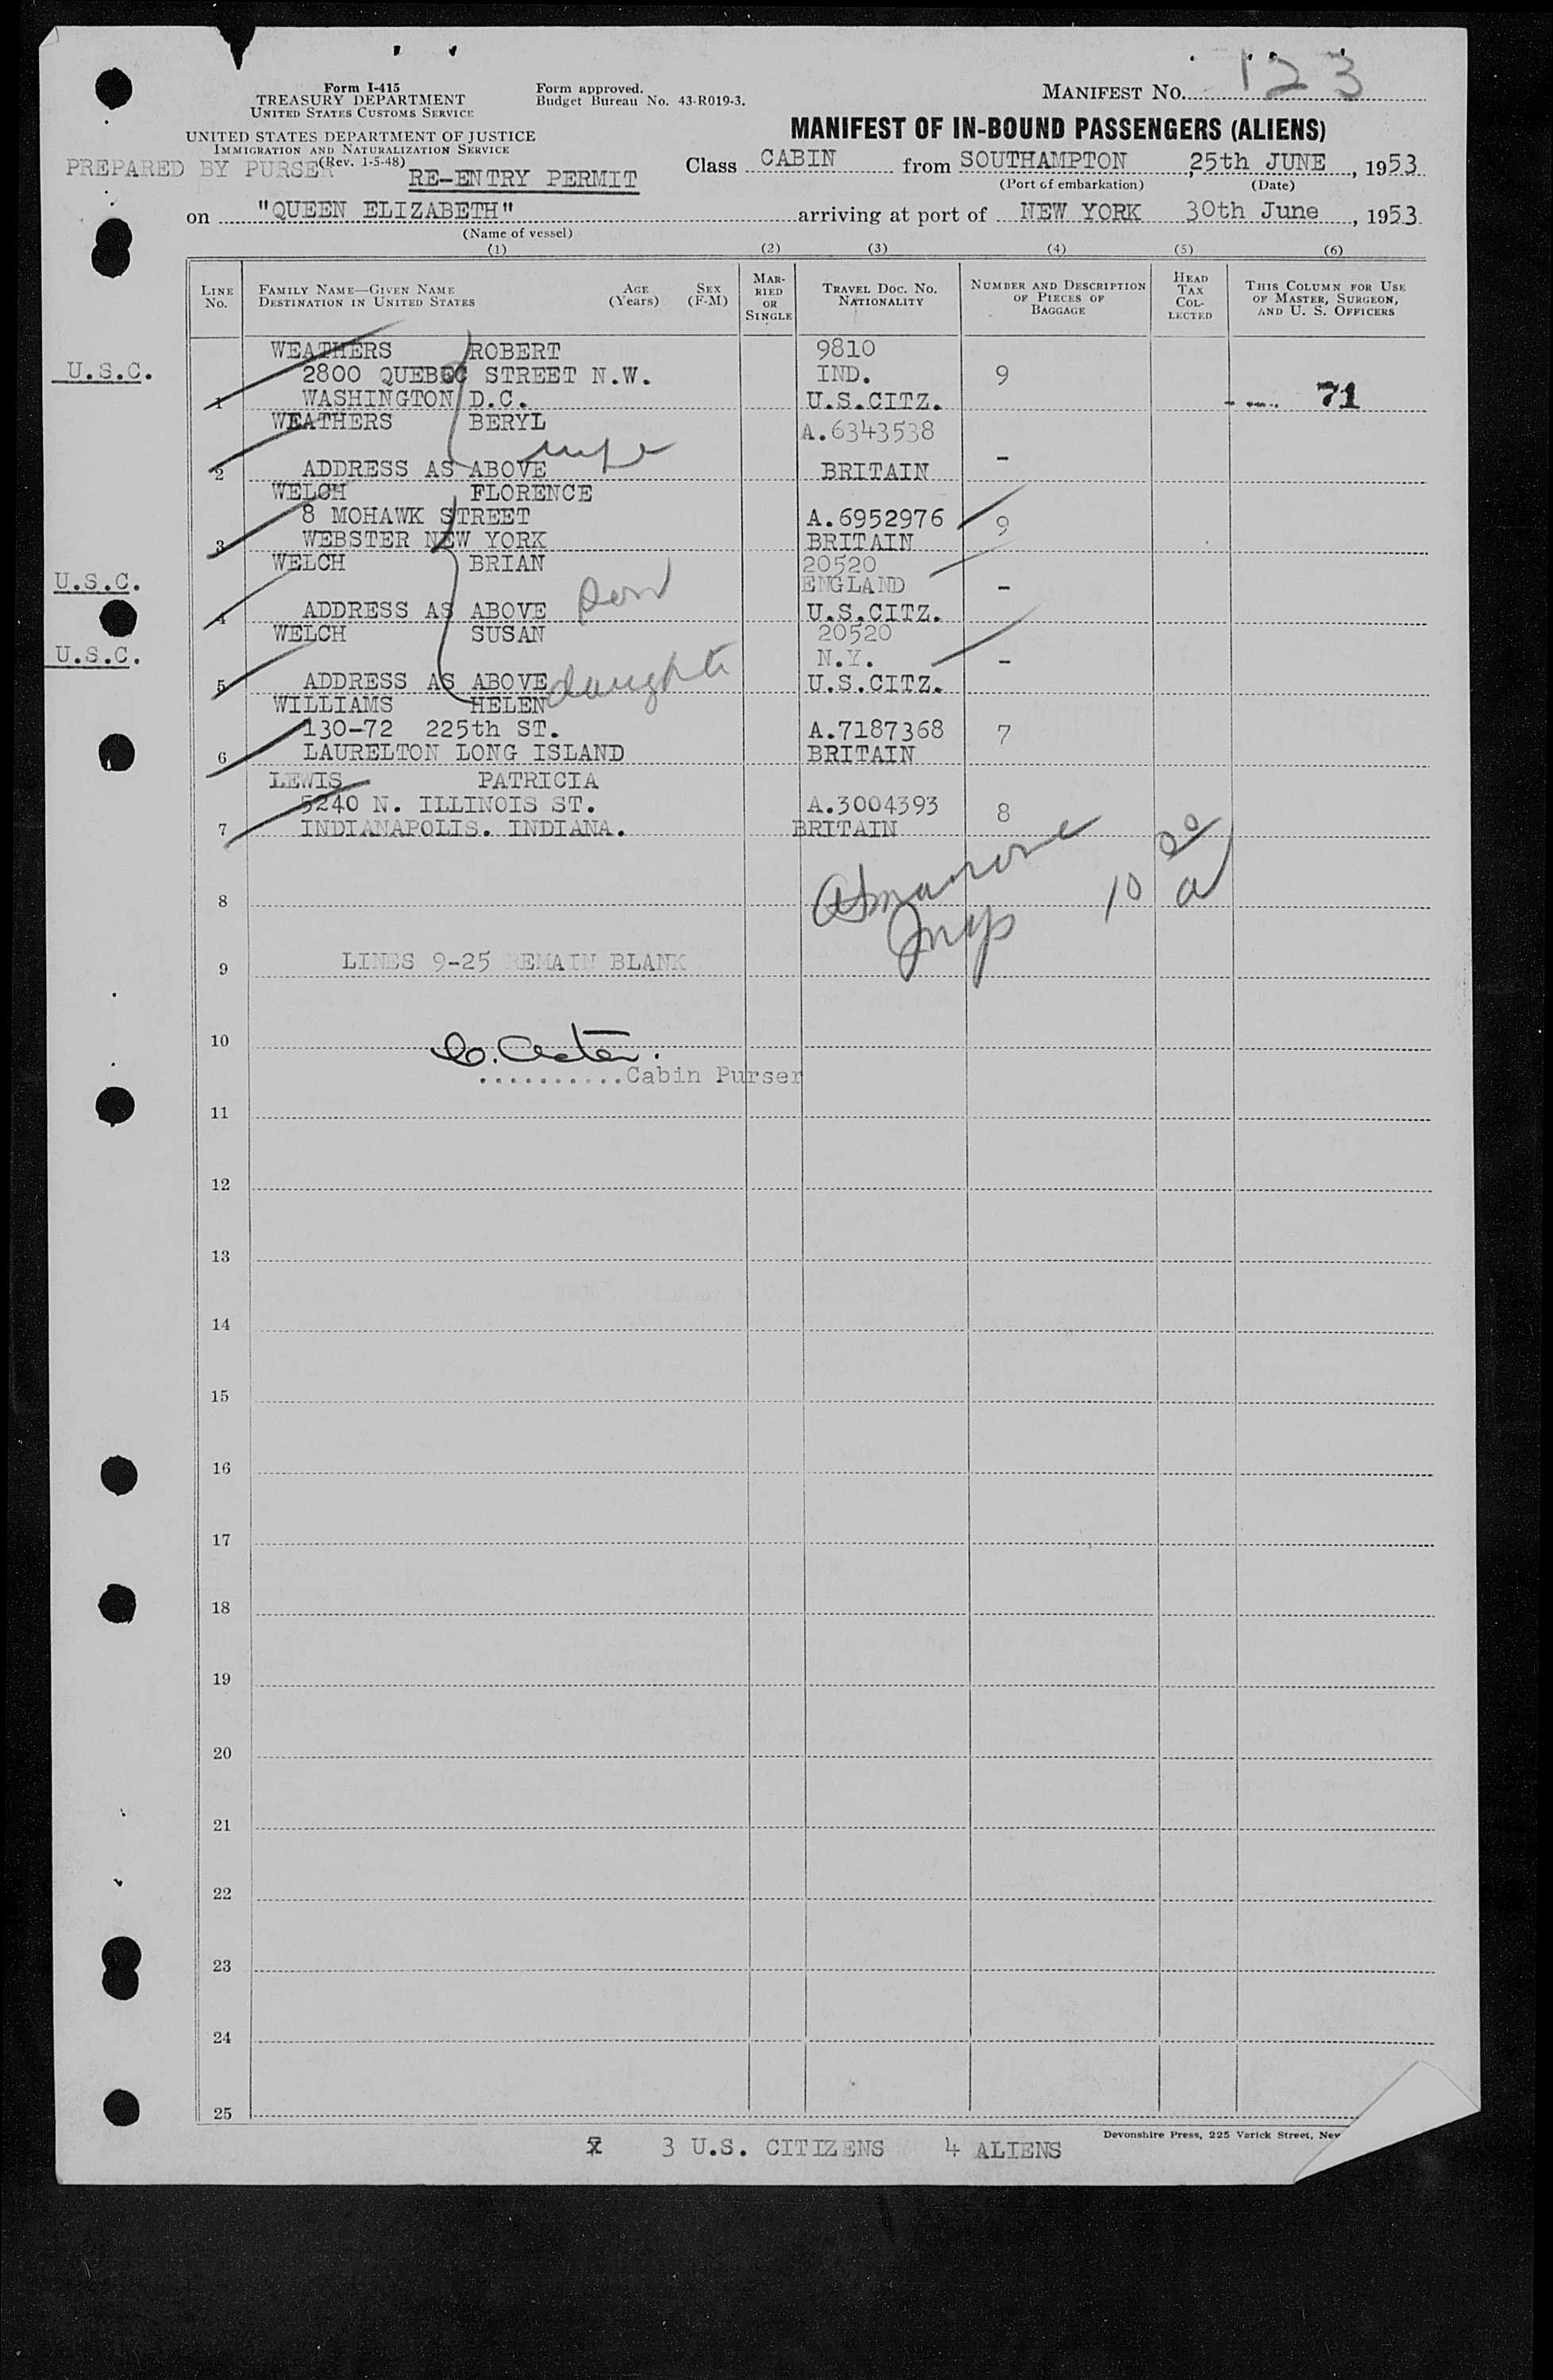 MANIFEST NO. 123
Form I-415
TREASURY DEPARTMENT
UNITED STATES CUSTOMS SERVICE
Form approved.
Budget Bureau No. 43-R019-3.
UNITED STATES DEPARTMENT OF JUSTICE
IMMIGRATION AND NATURALIZATION SERVICE
(Rev. 1-5-48)
PREPARED BY PURSER
RE-ENTRY PERMIT
MANIFEST OF IN-BOUND PASSENGERS (ALIENS)
Class CABIN from SOUTHAMPTON, 25th JUNE, 1953
(Port of embarkation) (Date)
on "QUEEN ELIZABETH" arriving at port of NEW YORK 30th June, 1953
(Name of vessel)
(1) (2) (3) (4) (5) (6)
LINE No. FAMILY NAME—GIVEN NAME DESTINATION IN UNITED STATES AGE (Years) SEX (F-M) MARRIED OR SINGLE TRAVEL DOC. NO. NATIONALITY NUMBER AND DESCRIPTION OF PIECES OF BAGGAGE HEAD TAX COLLECTED THIS COLUMN FOR USE OF MASTER, SURGEON, AND U. S. OFFICERS
WEATHERS ROBERT 9810
U.S.C. 2800 QUEBEC STREET N.W. IND. 9
1 WASHINGTON D.C. U.S.CITZ. 71
WEATHERS BERYL A.6343538
wife
2 ADDRESS AS ABOVE BRITAIN -
WELCH FLORENCE
8 MOHAWK STREET A.6952976 9
3 WEBSTER NEW YORK BRITAIN
WELCH BRIAN 20520
U.S.C. son ENGLAND -
4 ADDRESS AS ABOVE U.S.CITZ.
WELCH SUSAN 20520
U.S.C. N.Y. -
5 ADDRESS AS ABOVE daughter U.S.CITZ.
WILLIAMS HELEN
130-72 225th ST. A.7187368 7
6 LAURELTON LONG ISLAND BRITAIN
LEWIS PATRICIA
5240 N. ILLINOIS ST. A.3004393 8
7 INDIANAPOLIS. INDIANA. BRITAIN
8
10
9 LINES 9-25 REMAIN BLANK
10
..........Cabin Purser
11
12
13
14
15
16
17
18
19
20
21
22
23
24
25
Devonshire Press, 225 Varick Street, New
7 3 U.S. CITIZENS 4 ALIENS